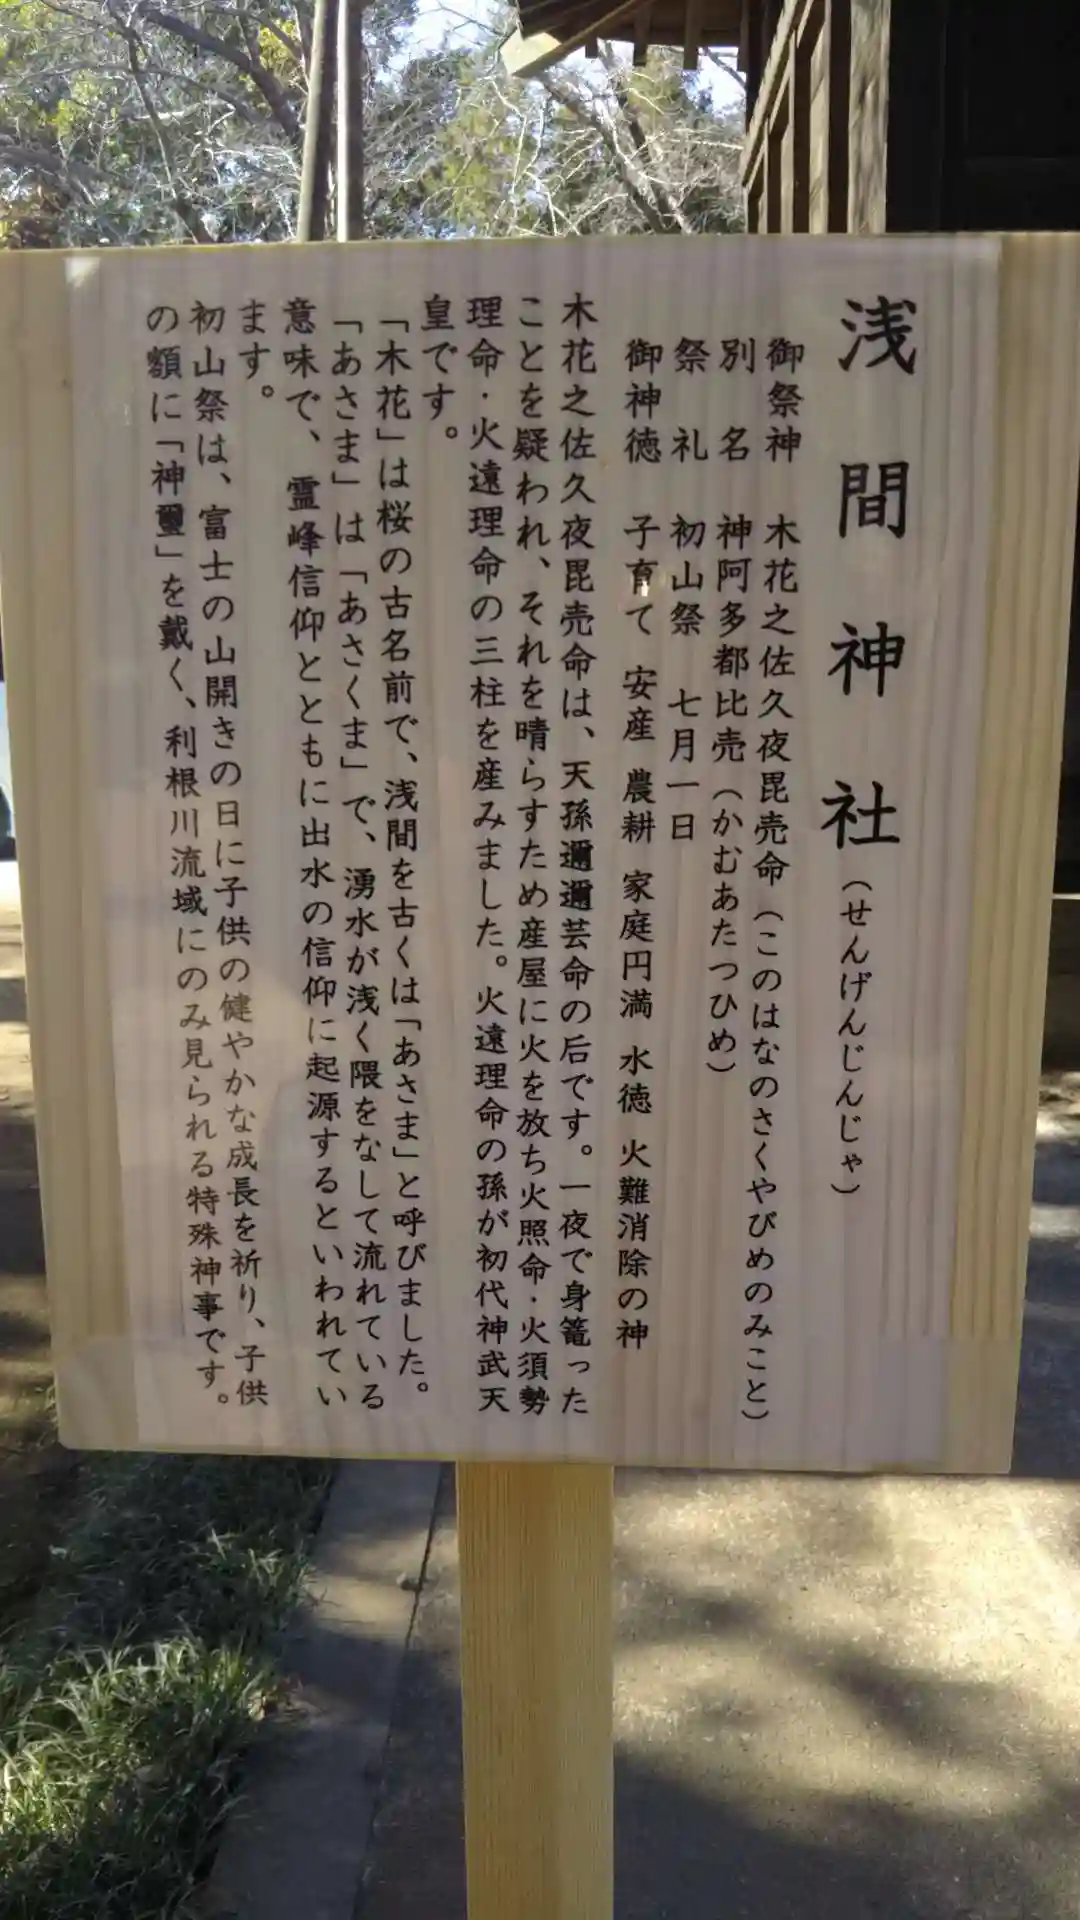 浅間神社（せんげんじんじゃ）
御祭神　木花之佐久夜毘売命（このはなのさくやびめのみこと）
別　名　神阿多都比売（かむあたつひめ）
祭　礼　初山祭　七月一日
御神徳　子育て　安産　農耕　家庭円満　水徳　火難消除の神
木花之佐久夜毘売命は、天孫邇邇芸命の后です。一夜で身篭った
ことを疑われ、それを晴らすため産屋に火を放ち火照命・火須勢
理命・火遠理命の三柱を産みました。火遠理命の孫が初代神武天
皇です。
「木花」は桜の古名前で、浅間を古くは「あさま」と呼びました。
「あさま」は「あさくま」で、湧水が浅く隈をなして流れている
意味で、霊峰信仰とともに出水の信仰に起源するといわれてい
ます。
初山祭は、富士の山開きの日に子供の健やかな成長を祈り、子供
の額に「神璽」を戴く、利根川流域にのみ見られる特殊神事です。